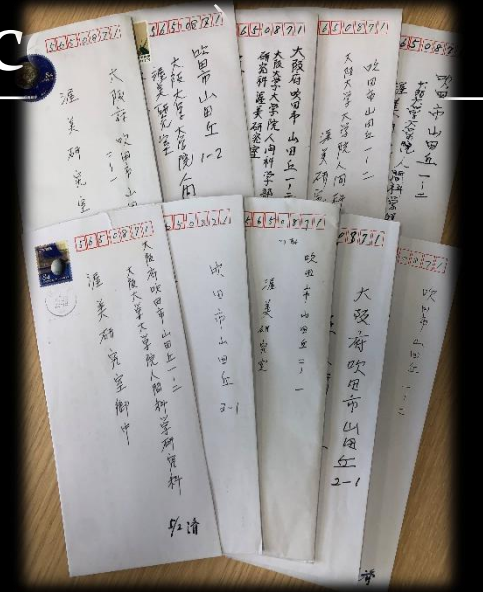 C
5650871
大阪府吹田市
二-一
渥美研究室
5650871
吹田市山田丘
1-2
大阪大学大学院人間
渥美研究室
650871
大阪府吹田市山田丘一-二
大阪大学大学院人間科学部
研究科渥美研究室
650871
吹田市山田丘一-二
大阪大学大学院人間科
渥美研究室
6508
吹田市山田丘一-二
大阪大学大学院人間科学
5650871
大阪府吹田市山田丘一-二
大阪大学大学院人間科学研究科
渥美研究室御中
5/2済
吹田市山田丘
2-1
5650871
吹田市山田丘二-一
渥美研究室
0871
大阪府吹田市山田丘
2-1
871
吹田市山田丘一-二